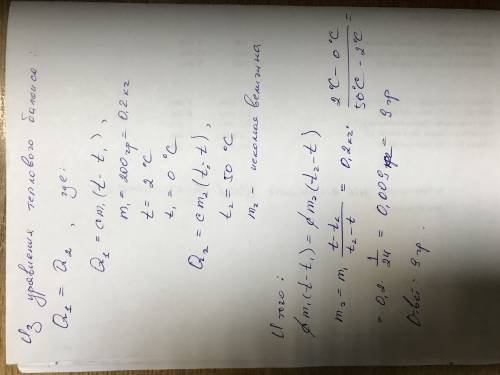 Из уравнения теплового баланса:
Q₁ = Q₂, где:
Q₁ = cm₁(t - t₁),
m₁ = 200 гр = 0,2 кг
t = 2 °C
t₁ = 0 °C
Q₂ = cm₂(t₂ - t),
t₂ = 50 °C
m₂ - искомая величина
Итого:
cm₁(t - t₁) = cm₂(t₂ - t)
m₂ = m₁ (t - t₂)/(t₂ - t) = 0,2 кг · (2 °C - 0 °C)/(50 °C - 2 °C) =
= 0,2 · 1/24 = 0,009 = 9 гр
Ответ: 9 гр.